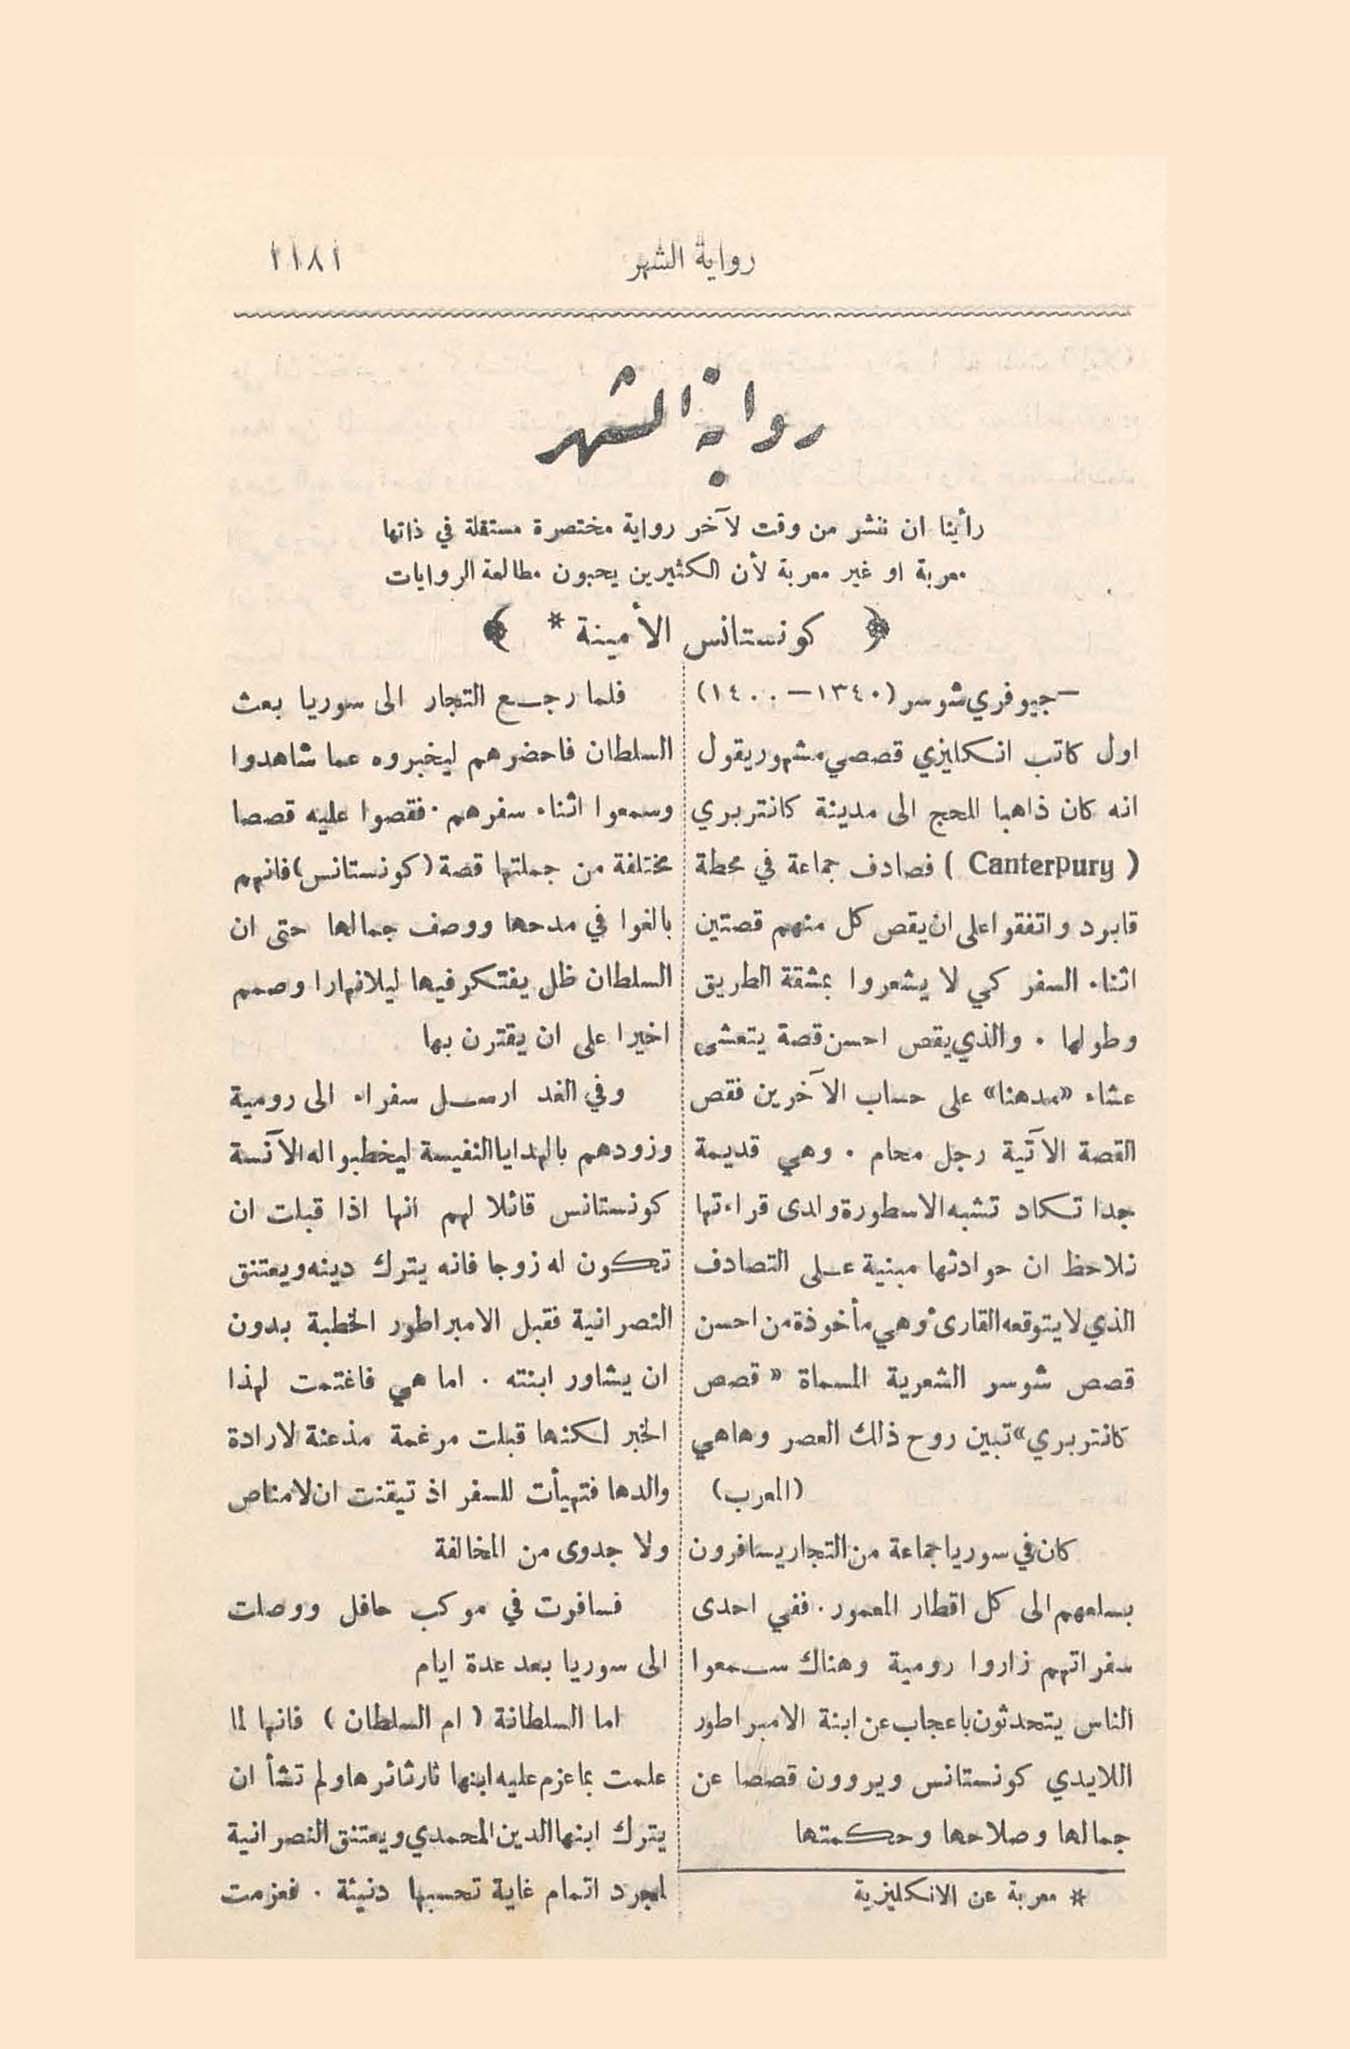 رواية الشهر
١١٨١
رواية الشهر
رأينا ان ننشر من وقت لآخر رواية مختصرة مستقلة في ذاتها
معربة او غير معربة لأن الكثيرين يحبون مطالعة الروايات
﴿ كونستانس الأمينة * ﴾
— جيوفري شوسر (١٣٤٠ — ١٤٠٠)
اول كاتب انكليزي قصصي مشهور يقول
انه كان ذاهبا للحج الى مدينة كانتربري
( Canterpury ) فصادف جماعة في محطة
قابرد واتفقوا على ان يقص كل منهم قصتين
اثناء السفر كي لا يشعروا بمشقة الطريق
وطولها . والذي يقص احسن قصة يتعشى
عشاء «مدهنا» على حساب الآخرين فقص
القصة الآتية رجل محام . وهي قديمة
جدا تكاد تشبه الاسطورة ولدى قراءتها
نلاحظ ان حوادثها مبنية على التصادف
الذي لا يتوقعه القارئ وهي مأخوذة من احسن
قصص شوسر الشعرية المسماة « قصص
كانتربري» تبين روح ذلك العصر وهاهي
(المعرب)
كان في سوريا جماعة من التجار يسافرون
بسلعهم الى كل اقطار المعمور . ففي احدى
سفراتهم زاروا رومية وهناك سمعوا
الناس يتحدثون باعجاب عن ابنة الامبراطور
اللايدي كونستانس ويروون قصصا عن
جمالها وصلاحها وحكمتها
* معربة عن الانكليزية
فلما رجع التجار الى سوريا بعث
السلطان فاحضرهم ليخبروه عما شاهدوا
وسمعوا اثناء سفرهم . فقصوا عليه قصصا
مختلفة من جملتها قصة (كونستانس) فانهم
بالغوا في مدحها ووصف جمالها حتى ان
السلطان ظل يفتكر فيها ليلا نهارا وصمم
اخيرا على ان يقترن بها
وفي الغد ارسل سفراء الى رومية
وزودهم بالهدايا النفيسة ليخطبوا له الآنسة
كونستانس قائلا لهم انها اذا قبلت ان
تكون له زوجا فانه يترك دينه ويعتنق
النصرانية فقبل الامبراطور الخطبة بدون
ان يشاور ابنته . اما هي فاغتمت لهذا
الخبر لكنها قبلت مرغمة مذعنة لارادة
والدها فتهيأت للسفر اذ تيقنت ان لا مناص
ولا جدوى من المخالفة
فسافرت في موكب حافل ووصلت
الى سوريا بعد عدة ايام
اما السلطانة ( ام السلطان ) فانها لما
علمت بما عزم عليه ابنها ثار ثائرها ولم تشأ ان
يترك ابنها الدين المحمدي ويعتنق النصرانية
لمجرد اتمام غاية تحسبها دنيئة . فعزمت